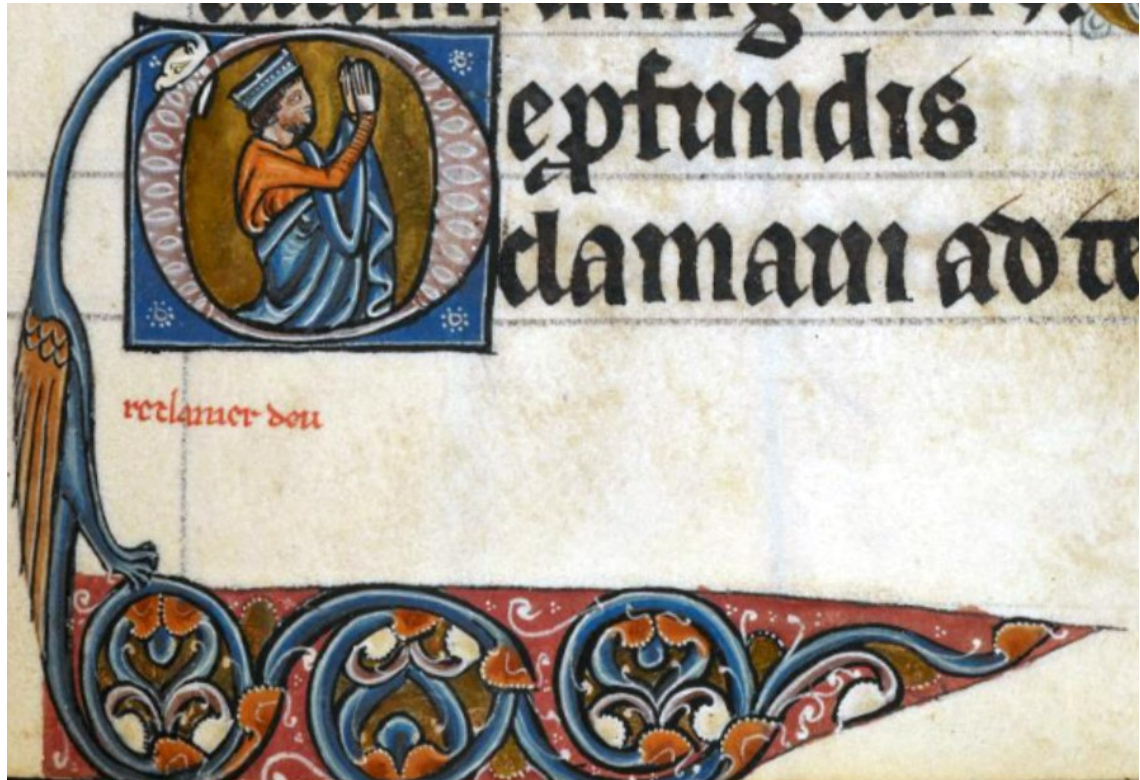 De ꝓfundis
clamaui ad te
reclamer dou